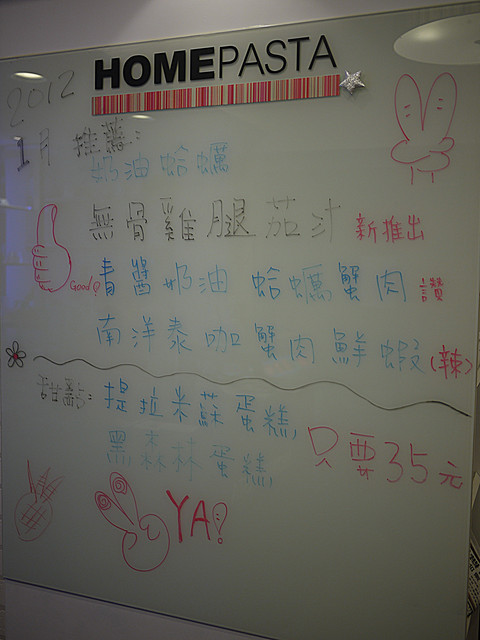 HOMEPASTA
2012
1月 推薦:
奶油蛤蠣
無骨雞腿茄汁 新推出
Good!
青醬奶油 蛤蠣蟹肉 讚
南洋泰咖蟹肉鮮蝦(辣)
甜點: 提拉米蘇蛋糕,
黑森林蛋糕, 只要35元
YA!